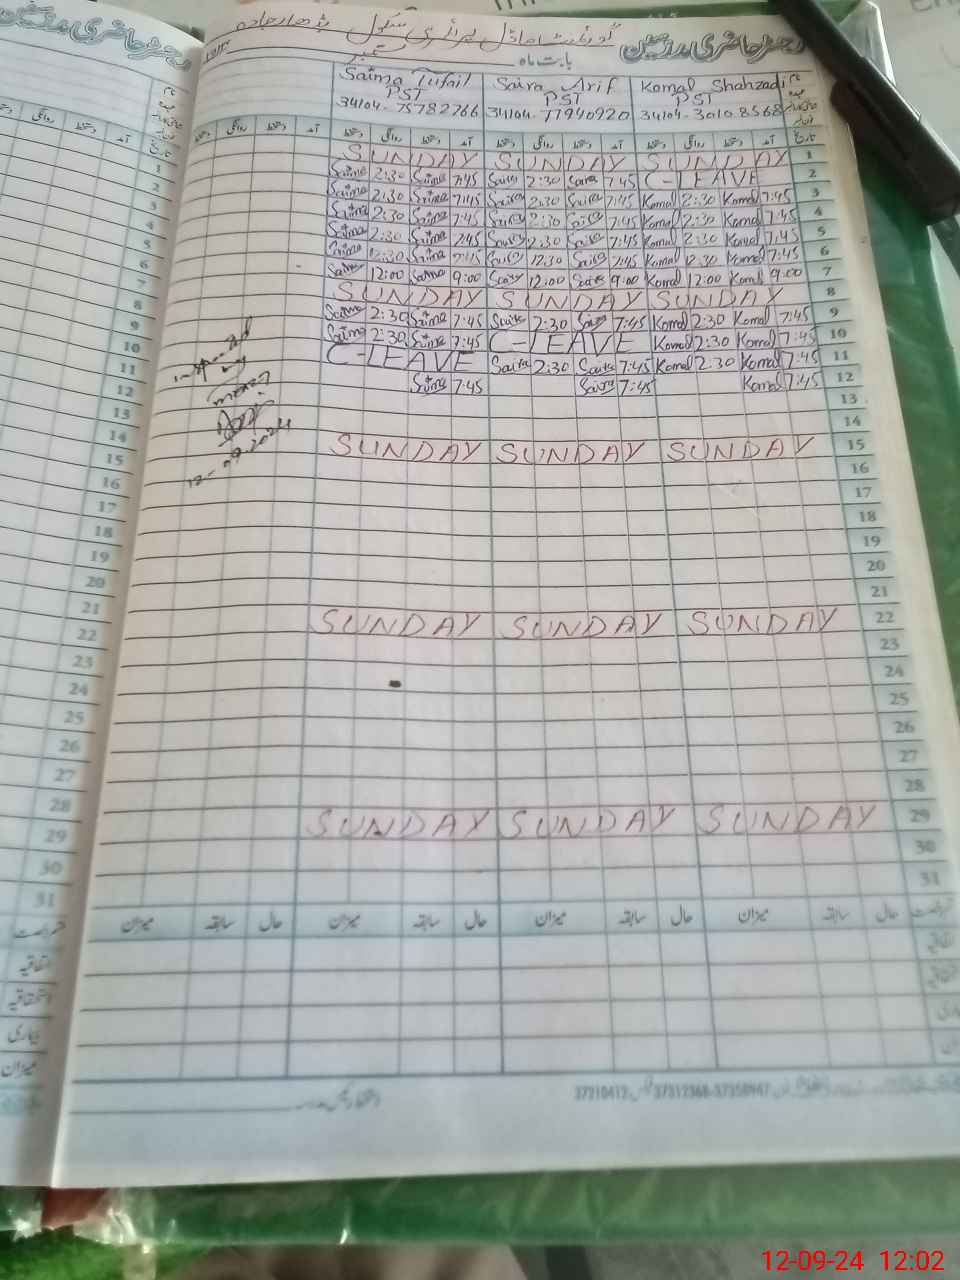 رجسٹر حاضری مدرسین
گورنمنٹ ماڈل پرائمری سکول
بابت ماہ ستمبر
Saima Tufail Saira Arif Komal Shahzadi نام
PST PST PST عہدہ
34104-75782766 34104-77940920 34104-3010 8568
دستخط روانگی دستخط آمد دستخط روانگی دستخط آمد دستخط روانگی دستخط آمد دستخط روانگی دستخط آمد تاریخ
SUNDAY SUNDAY SUNDAY 1
Saima 2:30 Saima 7:45 Saira 2:30 Saira 7:45 C-LEAVE 2
Saima 2:30 Saima 7:45 Saira 2:30 Saira 7:45 Komal 2:30 Komal 7:45 3
Saima 2:30 Saima 7:45 Saira 2:30 Saira 7:45 Komal 2:30 Komal 7:45 4
Saima 2:30 Saima 7:45 Saira 2:30 Saira 7:45 Komal 2:30 Komal 7:45 5
Saima 12:30 Saima 7:45 Saira 12:30 Saira 7:45 Komal 12:30 Komal 7:45 6
Saima 12:00 Saima 9:00 Saira 12:00 Saira 9:00 Komal 12:00 Komal 9:00 7
SUNDAY SUNDAY SUNDAY 8
Saima 2:30 Saima 7:45 Saira 2:30 Saira 7:45 Komal 2:30 Komal 7:45 9
Saima 2:30 Saima 7:45 C-LEAVE Komal 2:30 Komal 7:45 10
C-LEAVE Saira 2:30 Saira 7:45 Komal 2:30 Komal 7:45 11
Saima 7:45 Saira 7:45 Komal 7:45 12
13
14
SUNDAY SUNDAY SUNDAY 15
16
17
18
19
20
21
SUNDAY SUNDAY SUNDAY 22
23
24
25
26
27
28
SUNDAY SUNDAY SUNDAY 29
30
31
میزان سابقہ حال میزان سابقہ حال میزان سابقہ حال میزان سابقہ حال
12-09-2024
رجسٹر حاضری مدرسین
روانگی دستخط آمد تاریخ
1
2
3
4
5
6
7
8
9
10
11
12
13
14
15
16
17
18
19
20
21
22
23
24
25
26
27
28
29
30
31
اتفاقیہ
استحقاقیہ
بیماری
میزان
37210412 37312368-37358947
12-09-24 12:02